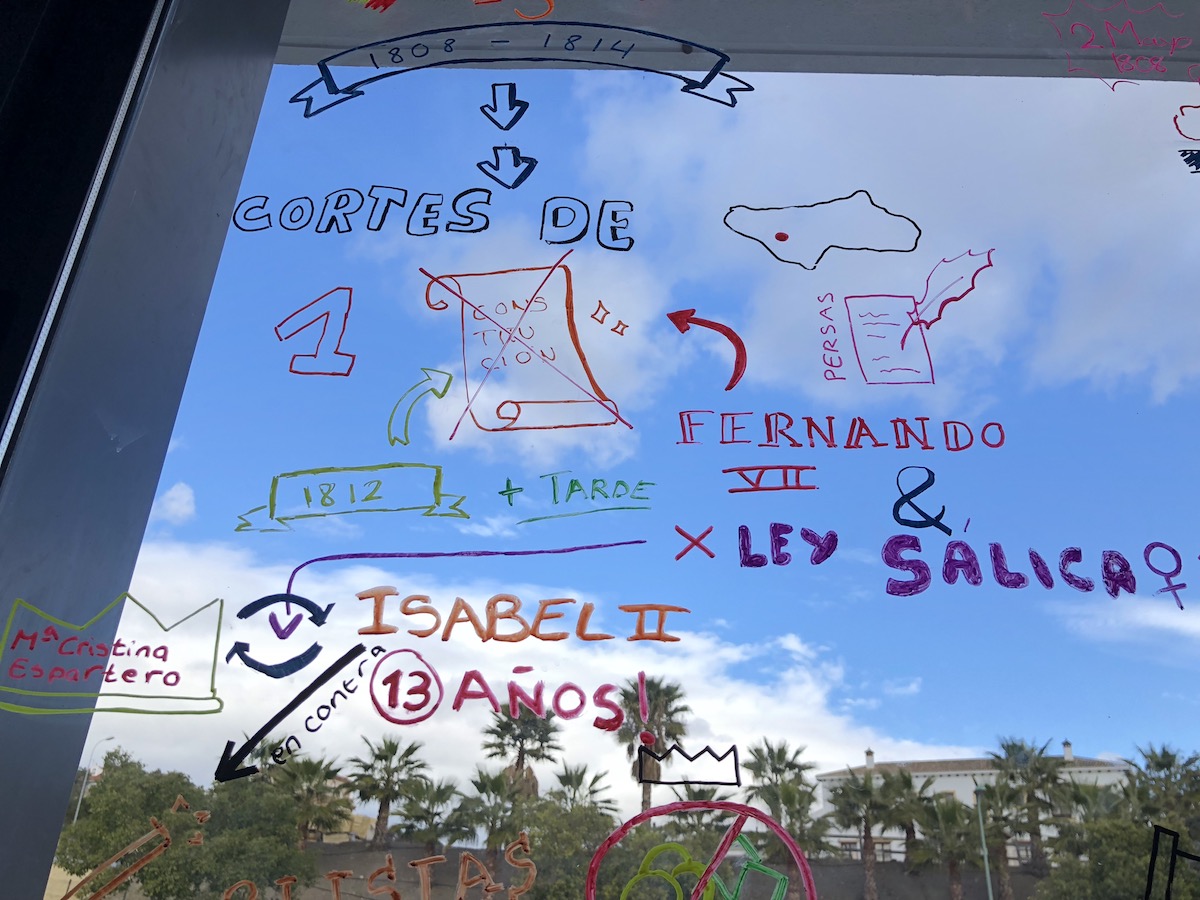 1808 - 1814
2 Mayo
1808
CORTES DE
1
CONS
TITU
CIÓN
PERSAS
FERNANDO
VII
&
1812
+ TARDE
X LEY SÁLICA
ISABEL II
Mª Cristina
Espartero
13 AÑOS!
en contra